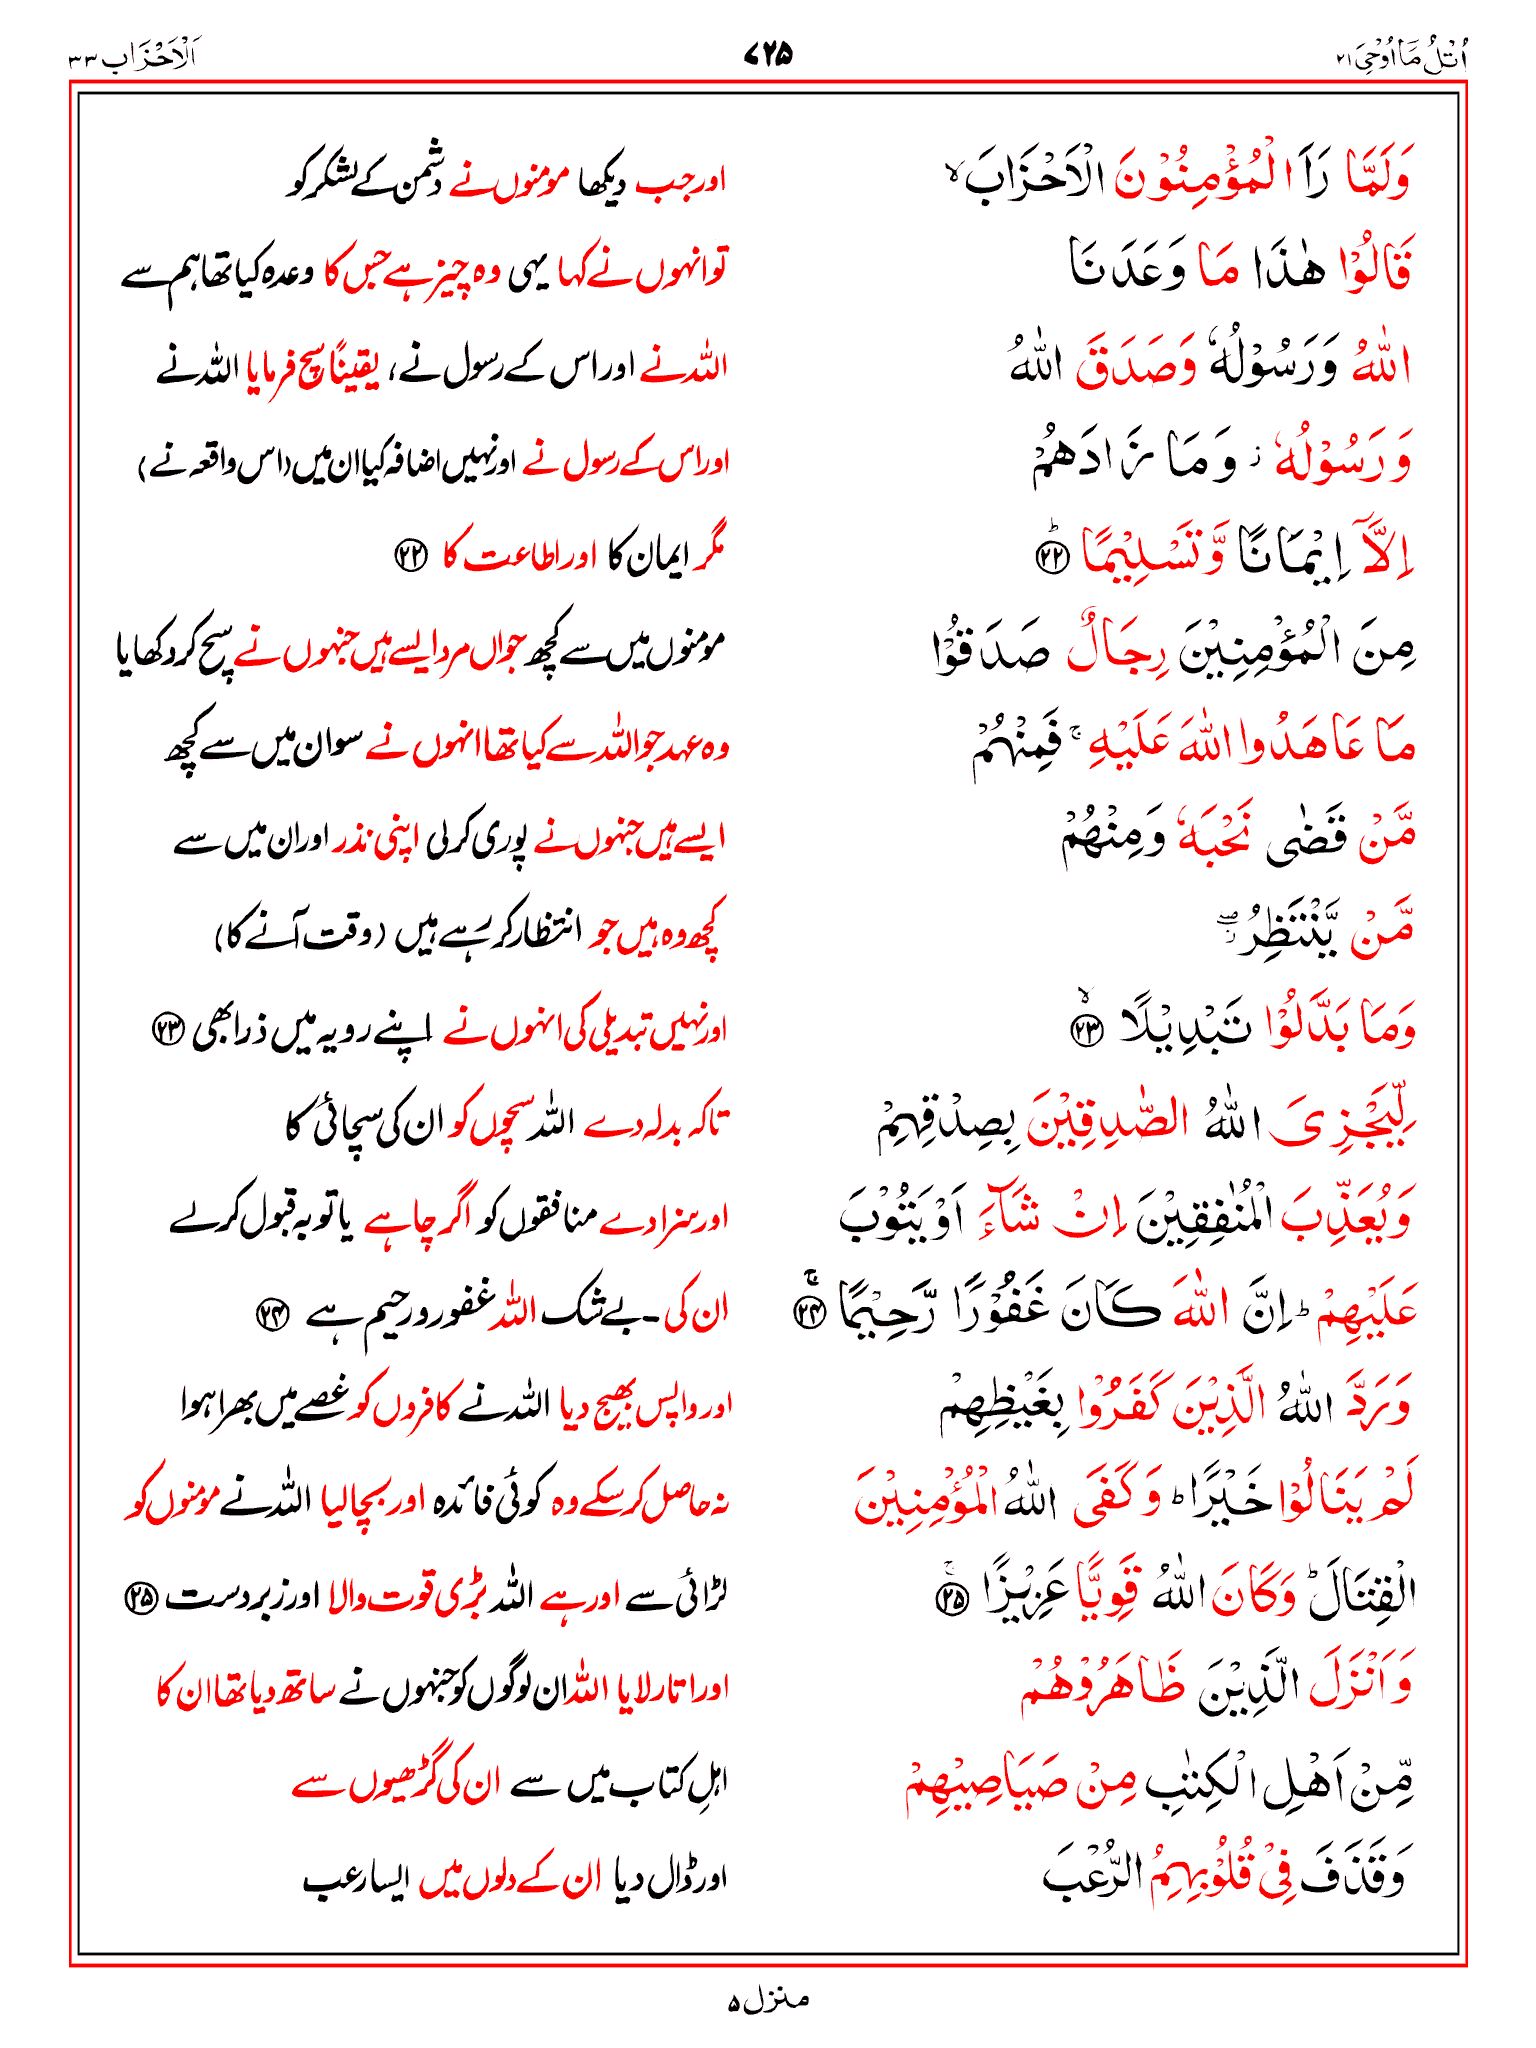 اُتْلُ مَآ اُوْحِیَ ۲۱
۷۲۵
اَلْاَحْزَاب ۳۳
وَلَمَّا رَاَ الْمُؤْمِنُوْنَ الْاَحْزَابَ ۙ
اور جب دیکھا مومنوں نے دشمن کے لشکر کو
قَالُوْا هٰذَا مَا وَعَدَنَا
تو انہوں نے کہا یہی وہ چیز ہے جس کا وعدہ کیا تھا ہم سے
اللّٰهُ وَرَسُوْلُهٗ وَصَدَقَ اللّٰهُ
اللہ نے اور اس کے رسول نے، یقیناً سچ فرمایا اللہ نے
وَرَسُوْلُهٗ ز وَمَا زَادَهُمْ
اور اس کے رسول نے اور نہیں اضافہ کیا ان میں (اس واقعہ نے)
اِلَّآ اِيْمَانًا وَّتَسْلِيْمًا ؕ ﴿۲۲﴾
مگر ایمان کا اور اطاعت کا ﴿۲۲﴾
مِنَ الْمُؤْمِنِيْنَ رِجَالٌ صَدَقُوْا
مومنوں میں سے کچھ جواں مرد ایسے ہیں جنہوں نے سچ کر دکھایا
مَا عَاهَدُوا اللّٰهَ عَلَيْهِ ۚ فَمِنْهُمْ
وہ عہد جو اللہ سے کیا تھا انہوں نے سو ان میں سے کچھ
مَّنْ قَضٰى نَحْبَهٗ وَمِنْهُمْ
ایسے ہیں جنہوں نے پوری کر لی اپنی نذر اور ان میں سے
مَّنْ يَّنْتَظِرُ ۖز
کچھ وہ ہیں جو انتظار کر رہے ہیں (وقت آنے کا)
وَمَا بَدَّلُوْا تَبْدِيْلًا ۙ ﴿۲۳﴾
اور نہیں تبدیلی کی انہوں نے اپنے رویہ میں ذرا بھی ﴿۲۳﴾
لِّيَجْزِىَ اللّٰهُ الصّٰدِقِيْنَ بِصِدْقِهِمْ
تاکہ بدلہ دے اللہ سچوں کو ان کی سچائی کا
وَيُعَذِّبَ الْمُنٰفِقِيْنَ اِنْ شَآءَ اَوْ يَتُوْبَ
اور سزا دے منافقوں کو اگر چاہے یا توبہ قبول کر لے
عَلَيْهِمْ ؕ اِنَّ اللّٰهَ كَانَ غَفُوْرًا رَّحِيْمًا ۚ ﴿۲۴﴾
ان کی ۔ بے شک اللہ غفور و رحیم ہے ﴿۲۴﴾
وَرَدَّ اللّٰهُ الَّذِيْنَ كَفَرُوْا بِغَيْظِهِمْ
اور واپس بھیج دیا اللہ نے کافروں کو غصے میں بھرا ہوا
لَمْ يَنَالُوْا خَيْرًا ؕ وَكَفَى اللّٰهُ الْمُؤْمِنِيْنَ
نہ حاصل کر سکے وہ کوئی فائدہ اور بچا لیا اللہ نے مومنوں کو
الْقِتَالَ ؕ وَكَانَ اللّٰهُ قَوِيًّا عَزِيْزًا ۚ ﴿۲۵﴾
لڑائی سے اور ہے اللہ بڑی قوت والا اور زبردست ﴿۲۵﴾
وَاَنْزَلَ الَّذِيْنَ ظَاهَرُوْهُمْ
اور اتار لایا اللہ ان لوگوں کو جنہوں نے ساتھ دیا تھا ان کا
مِّنْ اَهْلِ الْكِتٰبِ مِنْ صَيَاصِيْهِمْ
اہلِ کتاب میں سے ان کی گڑھیوں سے
وَقَذَفَ فِىْ قُلُوْبِهِمُ الرُّعْبَ
اور ڈال دیا ان کے دلوں میں ایسا رعب
منزل ۵